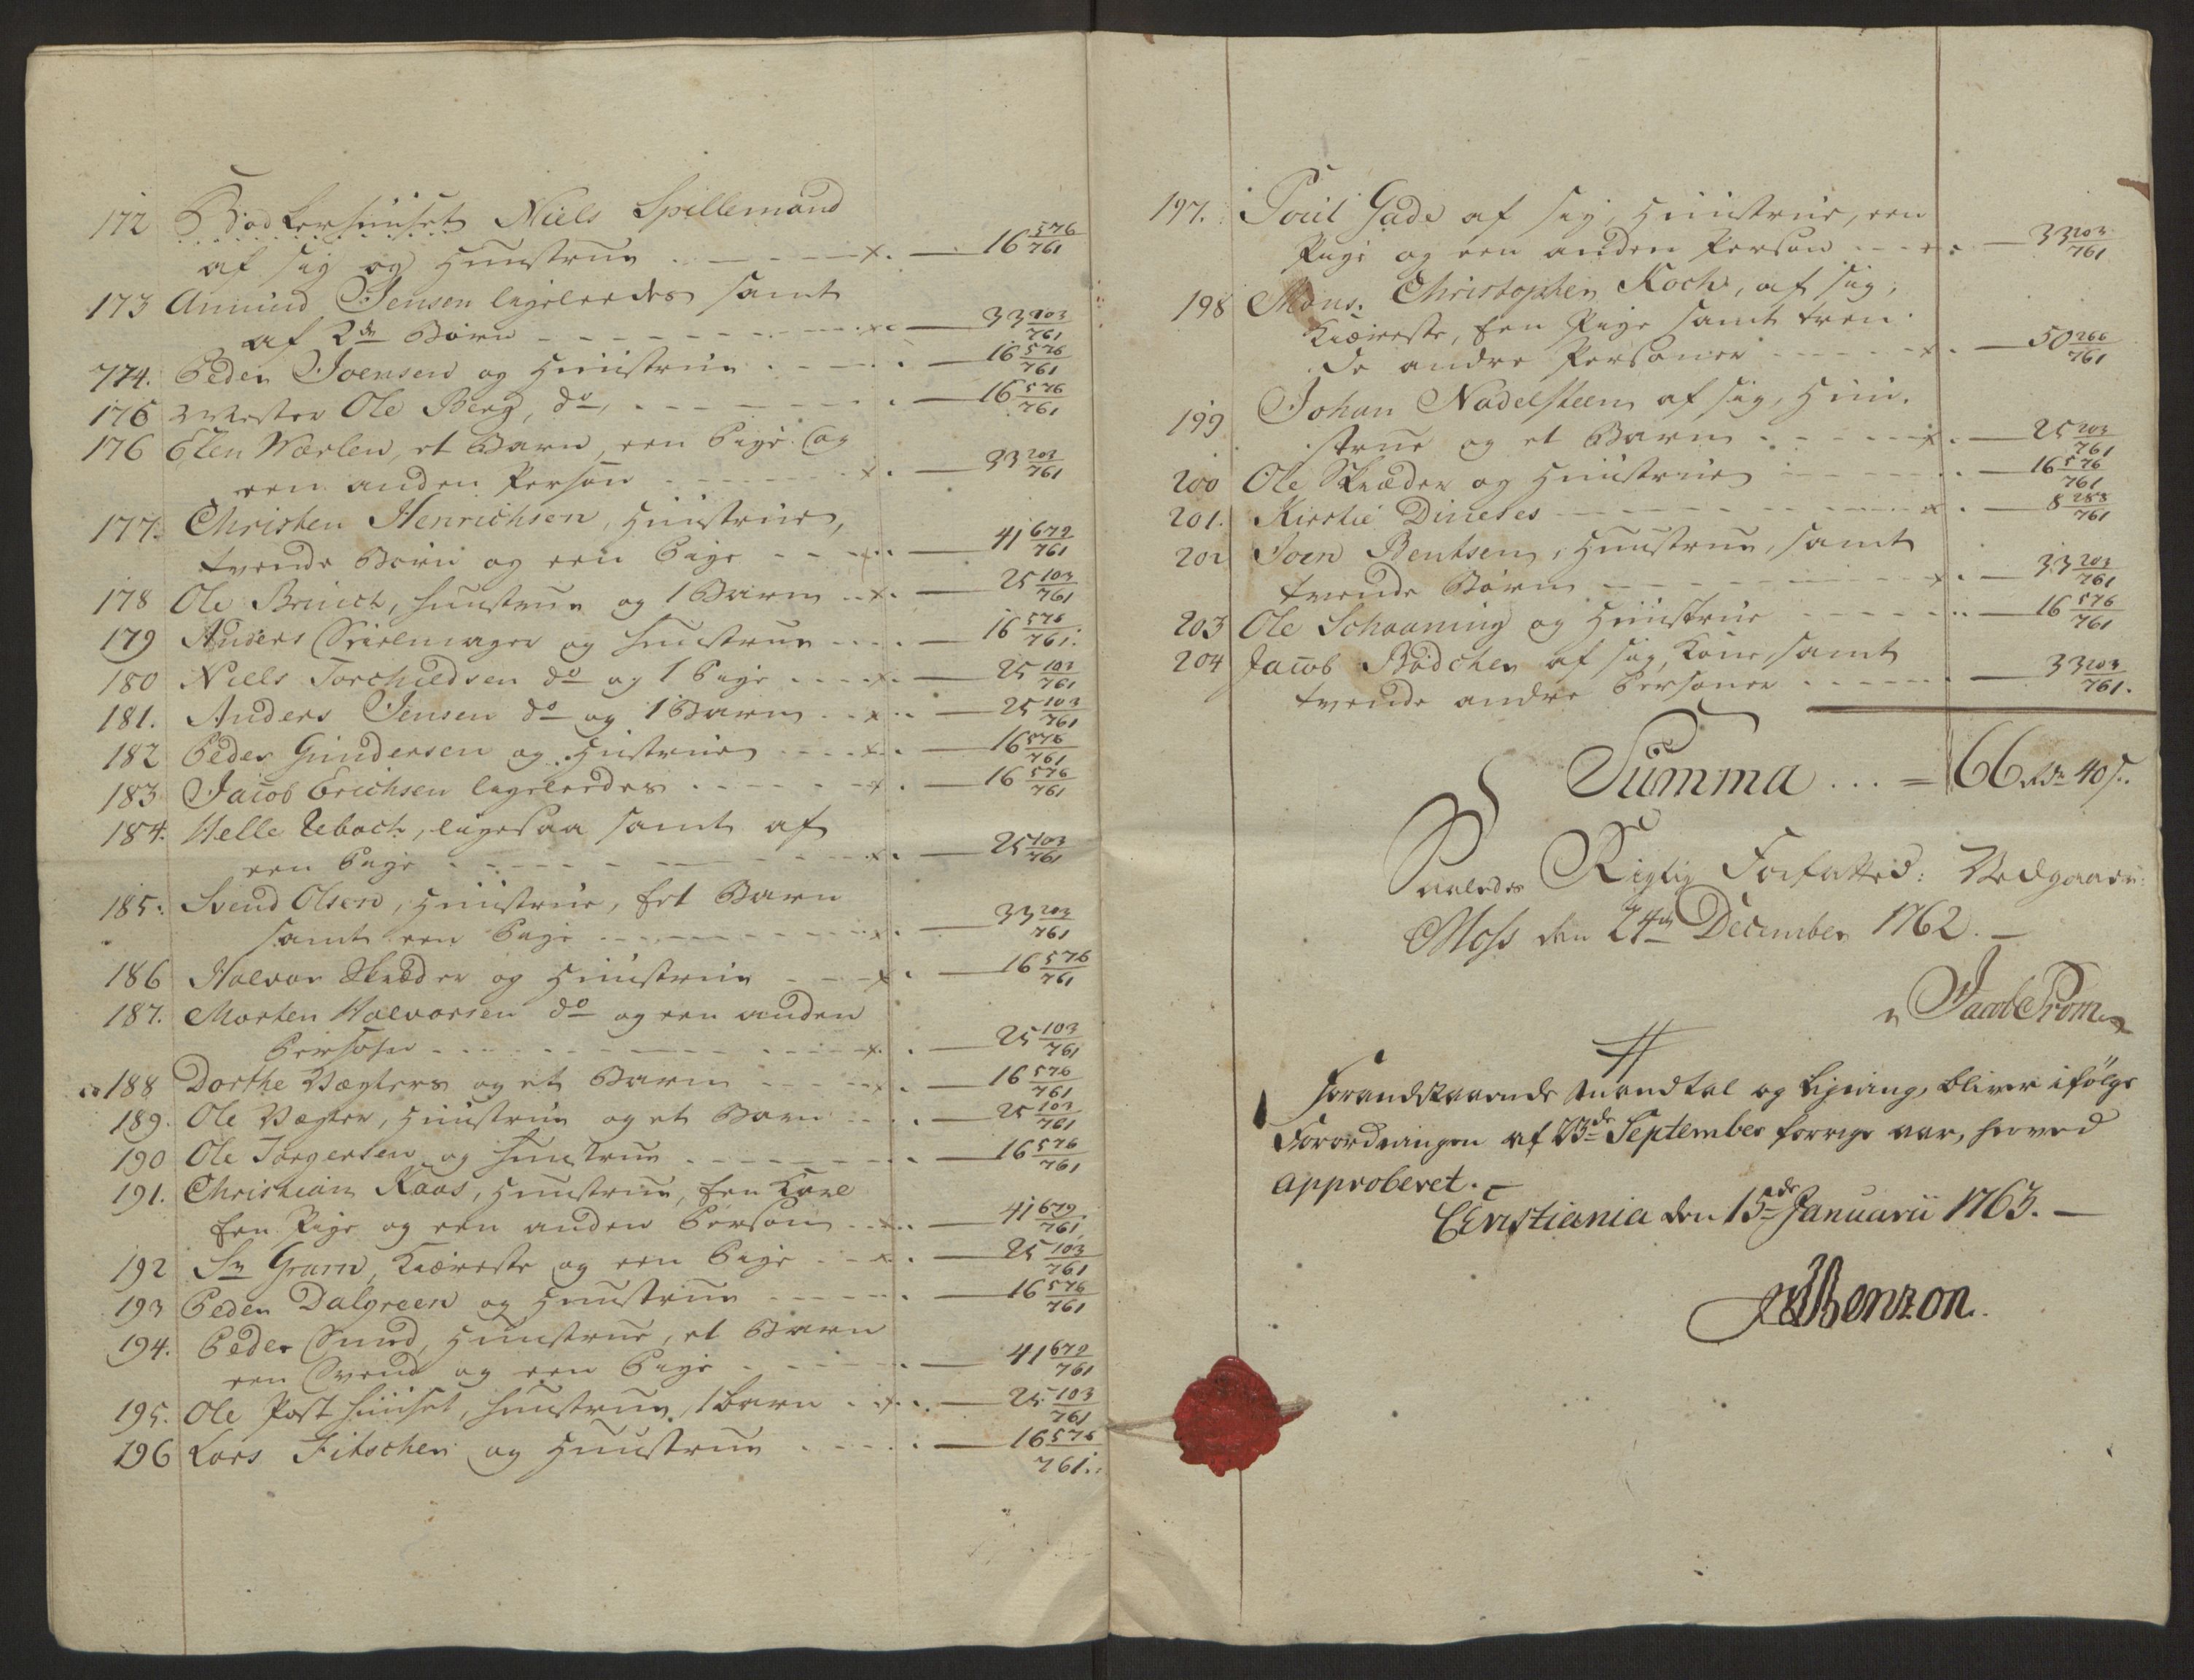 172 Bödkerhuuset Niels Spillemand
af sig og Huustrue - - - x. — 16 576/761
173 Amund Jensen ligeleedes samt
af 2de Börn - - - - x. — 33 203/761
774. Peder Joensen og Huustrue - - - . — 16 576/761
175 Mester Ole Berg, do, - - - - . — 16 576/761
176 Elen Wærlen, et Barn, een Pige og
een anden Person - - - x. — 33 203/761
177. Christen Henrichsen, Huustrue,
tvende Börn og een Pige - - - x. — 41 672/761
178 Ole Brinch, huustrue og 1 Barn - x. — 25 103/761
179 Anders Spielmager og huustrue - - - — 16 576/761.
180 Niels Torchildsen do og 1 Pige - - - x. — 25 103/761
181. Anders Jensen do og 1 Barn - - x. — 25 103/761
182 Peder Gundersen og Hustrue - - - x. — 16 576/761
183 Jacob Erichsen ligeleedes - - - - x. — 16 576/761
184. Helle Uboch, ligesaa samt af
een Pige - - - - - x. — 25 103/761
185. Svend Olsen, Huustrue, Eet Barn
samt een Pige - - - - - x. — 33 203/761
186 Halvor Skræder og Huustrue - - - x. — 16 576/761
187. Morten Halvorsen do og een anden
Person - - - - - x. — 25 103/761
188 Dorthe Vægters og et Barn - - - x. — 16 576/761
189. Ole Vægter, Huustrue og et Barn - - - — 25 103/761
190 Ole Torgersen og huustrue - - - - — 16 576/761
191. Christian Kaas, Huustrue, Een Karl
Een Pige og een anden Person - - x. — 41 672/761
192 Sr Gram, Kiæreste og een Pige - - x. — 25 103/761
193 Peder Dalgreen og Huustrue - - - - — 16 576/761
194. Peder Sund, Huustrue, et Barn
een Svend og een Pige - - - - — 41 672/761
195. Ole Posthuuset, huustrue, 1 barn - x. — 25 103/761
196 Lars Fitscher og Huustrue - - - - — 16 576/761.
197. Poul Gade af sig, Huustrue, een
Pige og een anden Person - - - x. — 33 203/761
198 Mons. Christopher Koch, af sig,
Kiæreste, Een Pige samt tren-
de andre Personer - - - x. — 50 266/761
199 Johan Nadelsteen af sig, Huu-
strue og et Barn - - - - x. — 25 203/761
200 Ole Skræder og Huustrue - - - - — 16 576/761
201. Kirstie Dineses - - - - - x. — 8 288/761
202 Joen Bentsen, Huustrue, samt
tvende Börn - - - - - x. — 33 203/761
203 Ole Schaaning og Huustrue - - - - — 16 576/761
204 Jacob Bödcher af sig, Kone, samt
tvende andre Personer - - - - — 33 203/761.
Summa . . . = 66 Rdr 40 s.
Saaledes Rigtig Forfatted: Vedgaaer:
Moss den 24de December 1762. —
Forandstaaende Mandtal og Ligning, bliver ifölge
Forordningen af 23de September forrige aar, herved
approberet. —
Christiania den 15de Januarii 1763. —
Benzon.